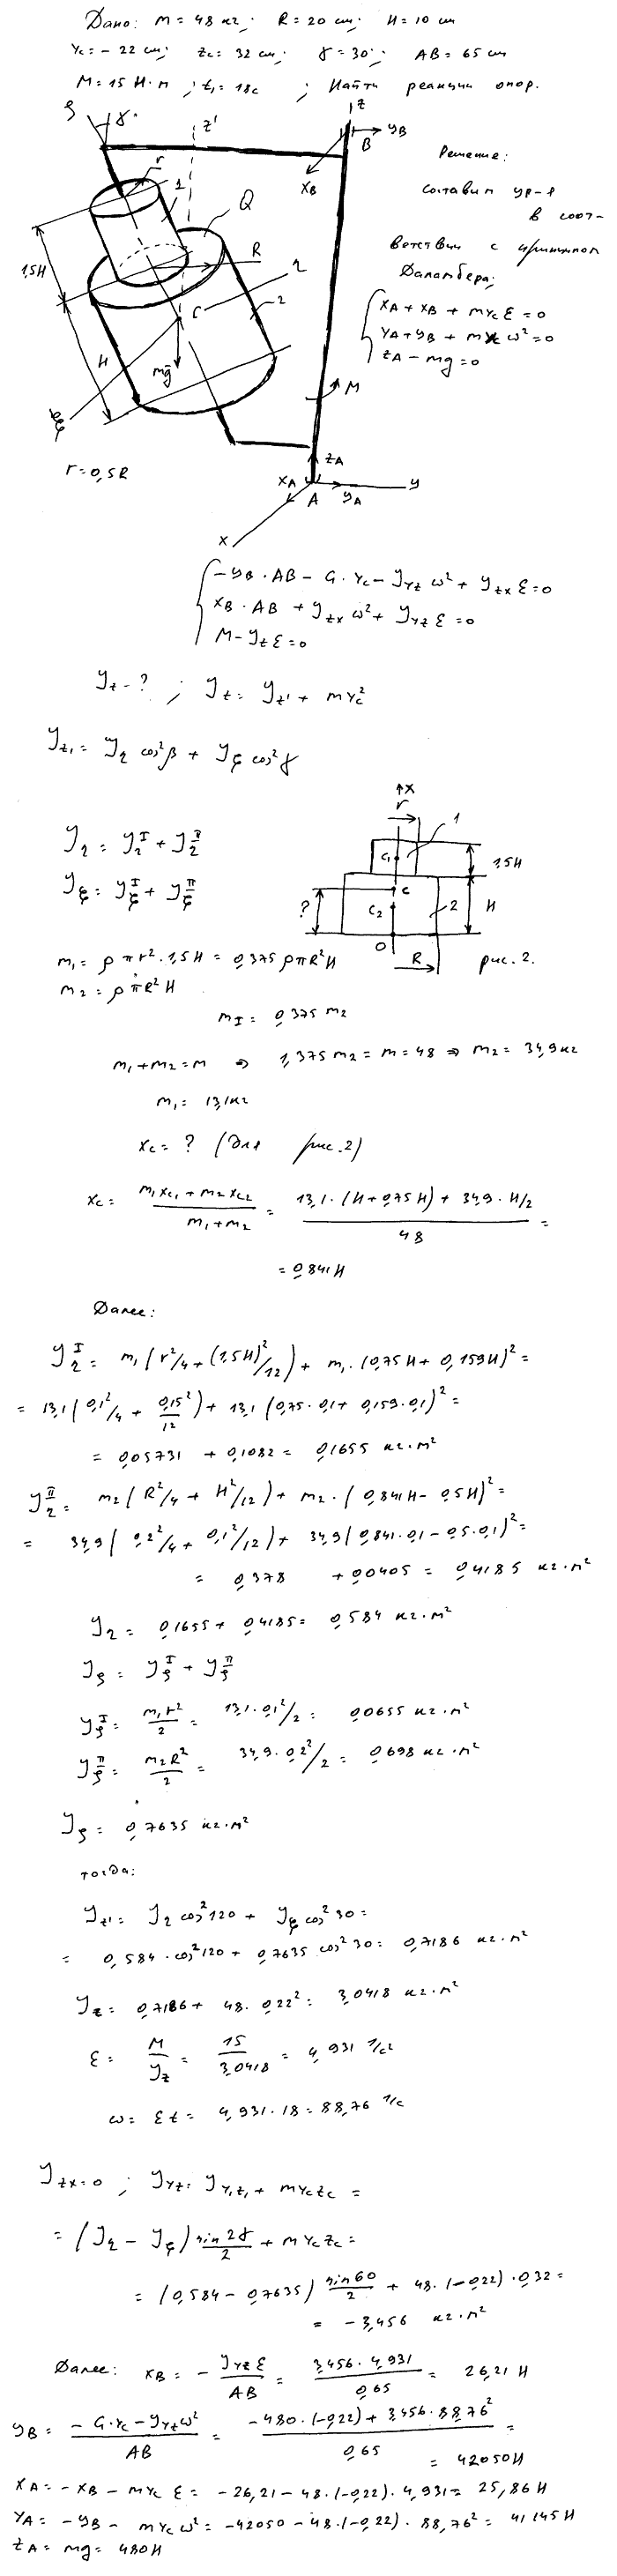 Дано: M = 48 кг; R = 20 см; H = 10 см
Yc = - 22 см; Zc = 32 см; γ = 30°; AB = 65 см
M = 15 Н·м ; t₁ = 18с ; Найти реакции опор.
Решение:
составим ур-я
в соот-
ветствии с принципом
Даламбера:
XA + XB + mYc ε = 0
YA + YB + mYc ω² = 0
ZA - mg = 0
ζ
γ
z'
z
B
yB
xB
r
1
Q
1,5H
R
η
C
2
H
mg
ξ
M
r = 0,5R
zA
xA
A
yA
y
x
-yB · AB - G · Yc - Jyz ω² + Jzx ε = 0
XB · AB + Jzx ω² + Jyz ε = 0
M - Jz ε = 0
Jz - ? ; Jz = Jz' + mYc²
Jz₁ = Jη cos²β + Jξ cos²γ
Jη = Jη^I + Jη^II
Jξ = Jξ^I + Jξ^II
x
r
1
C₁
1,5H
?
C
C₂
2
H
O
R
рис. 2.
m₁ = ρπr² · 1,5H = 0,375 ρπR²H
m₂ = ρπR²H
mI = 0,375 m₂
m₁ + m₂ = m ⇒ 1,375 m₂ = m = 48 ⇒ m₂ = 34,9 кг
m₁ = 13,1 кг
Xc = ? (для рис. 2)
Xc = (m₁xc₁ + m₂xc₂)/(m₁ + m₂) = (13,1 · (H + 0,75H) + 34,9 · H/2)/48 =
= 0,841H
Далее:
Jη^I = m₁(r²/4 + (1,5H)²/12) + m₁ · (0,75H + 0,159H)² =
= 13,1(0,1²/4 + 0,15²/12) + 13,1(0,75 · 0,1 + 0,159 · 0,1)² =
= 0,05731 + 0,1082 = 0,1655 кг·м²
Jη^II = m₂(R²/4 + H²/12) + m₂ · (0,841H - 0,5H)² =
= 34,9(0,2²/4 + 0,1²/12) + 34,9(0,841 · 0,1 - 0,5 · 0,1)² =
= 0,378 + 0,0405 = 0,4185 кг·м²
Jη = 0,1655 + 0,4185 = 0,584 кг·м²
Jζ = Jζ^I + Jζ^II
Jζ^I = m₁r²/2 = 13,1 · 0,1²/2 = 0,0655 кг·м²
Jζ^II = m₂R²/2 = 34,9 · 0,2²/2 = 0,698 кг·м²
Jζ = 0,7635 кг·м²
тогда:
Jz' = Jη cos²120 + Jξ cos²30 =
= 0,584 · cos²120 + 0,7635 cos²30 = 0,7186 кг·м²
Jz = 0,7186 + 48 · 0,22² = 3,0418 кг·м²
ε = M/Jz = 15/3,0418 = 4,931 1/с²
ω = εt = 4,931 · 18 = 88,76 1/с
Jzx = 0 ; Jyz = Jy₁z₁ + mYcZc =
= (Jη - Jξ) sin 2γ/2 + mYcZc =
= (0,584 - 0,7635) sin 60/2 + 48 · (-0,22) · 0,32 =
= -3,456 кг·м²
Далее: XB = - Jyz ε/AB = 3,456 · 4,931/0,65 = 26,21 Н
yB = (-G · Yc - Jyz ω²)/AB = (-480 · (-0,22) + 3,456 · 88,76²)/0,65 =
= 42050 Н
XA = -XB - mYc ε = -26,21 - 48 · (-0,22) · 4,931 = 25,86 Н
YA = -yB - mYc ω² = -42050 - 48 · (-0,22) · 88,76² = 41145 Н
ZA = mg = 480 Н